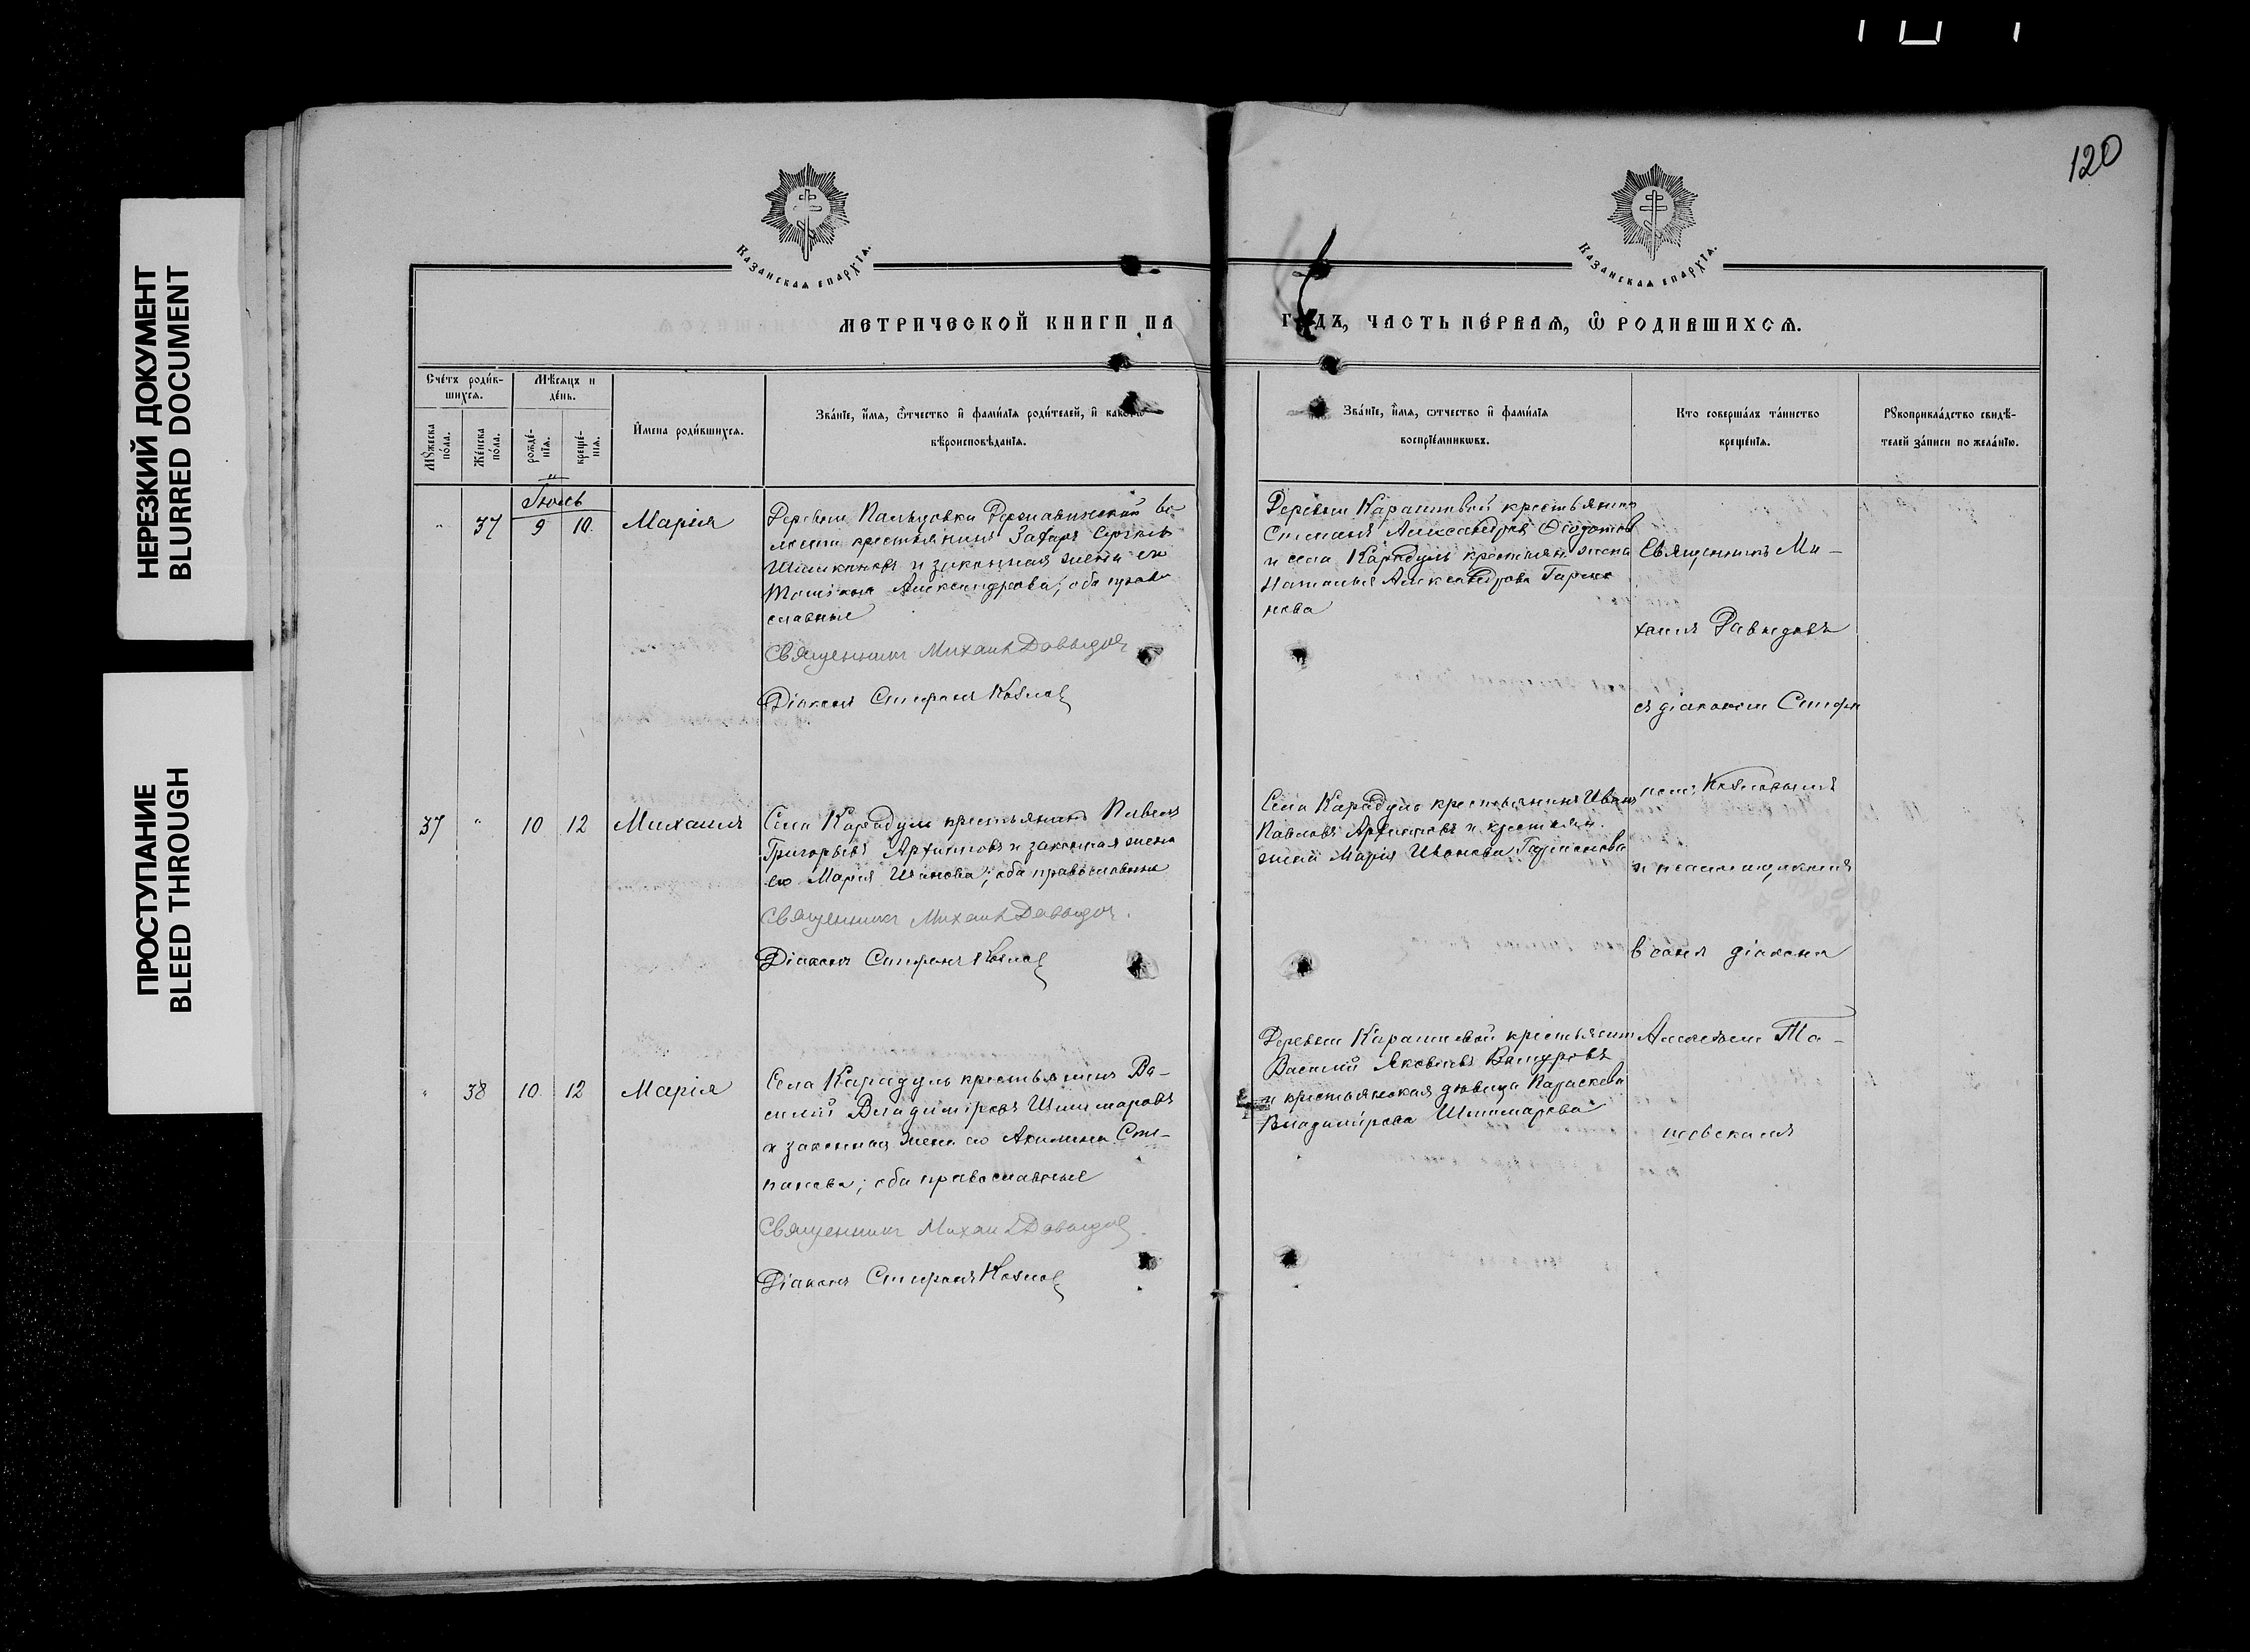 120
НЕРЕЗКИЙ ДОКУМЕНТ
BLURRED DOCUMENT
ПРОСТУПАНИЕ
BLEED THROUGH
Казанская епархїѧ.
Казанская епархїѧ.
МЕТРИЧЕСКОЙ КНИГИ НА ГОДЪ, ЧАСТЬ ПЕ́РВАѦ, Ѿ РОДИВШИХСѦ.
Сче́тъ роди́в-
шихсѧ.
Мꙋ́жеска
по́ла.
Же́нска
по́ла.
Мѣ́сѧцъ и
де́нь.
рожде́-
нїѧ.
креще́-
нїѧ.
И҆мена роди́вшихсѧ.
Зва́нїе, и҆́мѧ, ѻ҆́тчество и҆ фами́лїѧ роди́телей, и҆ како́гѡ
вѣроисповѣ́данїѧ.
Зва́нїе, и҆́мѧ, ѻ҆́тчество и҆ фами́лїѧ
воспрїе́мникѡвъ.
Кто соверша́лъ та́инство
креще́нїѧ.
Рꙋкоприкла́дство свидѣ́-
телей за́писи по жела́нїю.
Іюль
" 37 9 10 Марія
Деревни Пальцовки Державинской во-
лости крестьянинъ Захаръ Сергѣевъ
и законная жена его
Александрова; оба право
славные
Священникъ Михаил Давыдов
Діаконъ Стефанъ Козлов
Деревни Карашевой крестьянинъ
Степанъ Александровъ Ѳедотовъ
и села Карадуль крестьян. жена
Наталья Александрова
нова
Священникъ Ми-
хаилъ Давыдовъ
съ діакономъ Стефа
номъ Козловымъ
и псаломщикомъ
въ санѣ діакона
Алексѣемъ Та-
шевскимъ
37 " 10 12 Михаилъ
Села Карадуль крестьянинъ Павелъ
Григорьевъ Архиповъ и законная жена
его Марія Иванова; оба православные
Священникъ Михаил Давыдов.
Діаконъ Стефанъ Козлов
Села Карадуль крестьянинъ Иванъ
Павловъ Архиповъ и крестьян.
жена Марія Иванова
" 38 10 12 Марія
Села Карадуль крестьянинъ Ва-
силій Владиміровъ Шишмаровъ
и законная жена его Акилина Сте-
панова; оба православные
Священникъ Михаил Давыдов.
Діаконъ Стефанъ Козлов
Деревни Карашевой крестьянинъ
Василій Яковлевъ
и крестьянская дѣвица Параскева
Владимірова Шишмарева